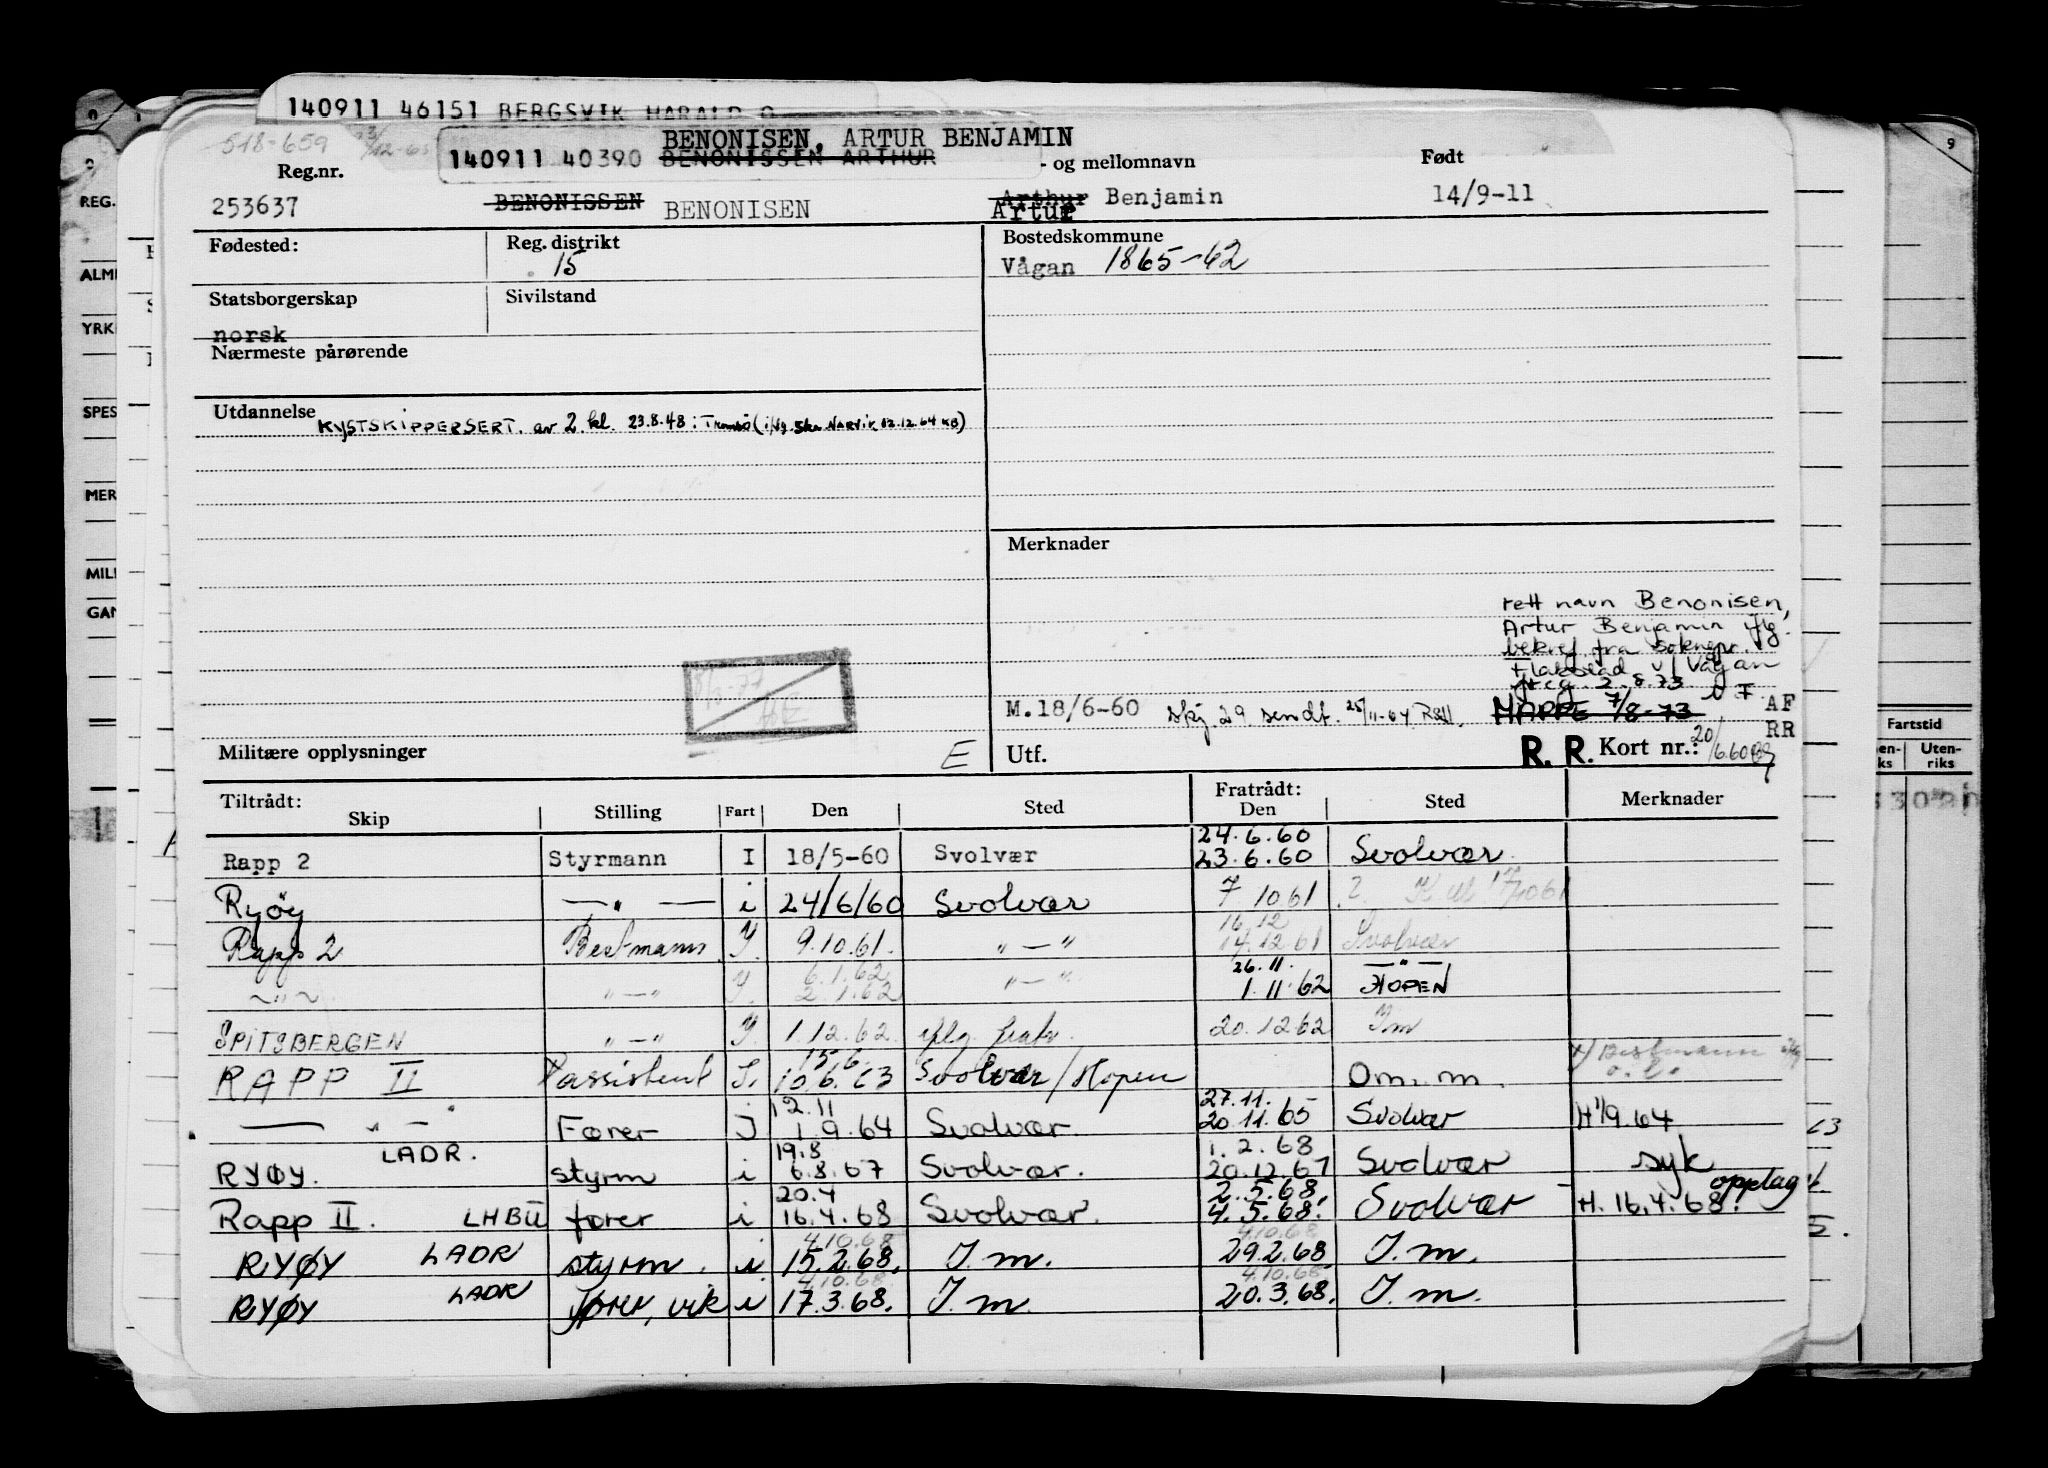 140911 46151 BERGSVIK HARALD O
518-659
BENONISEN, ARTUR BENJAMIN
140911 40390 BENONISSEN ARTHUR
Reg.nr.
- og mellomnavn
Født
253637 BENONISSEN BENONISEN
Arthur Benjamin
Artur
14/9-11
Fødested:
Reg. distrikt
15
Bostedskommune
Vågan 1865-42
Statsborgerskap
norsk
Sivilstand
Nærmeste pårørende
Utdannelse
KYSTSKIPPERSERT. av 2. kl. 23.8.48 i Tromsø
Merknader
rett navn Benonisen,
Artur Benjamin iflg.
bekref. fra soknepr.
v/ Vågan
2.8.73
M.18/6-60 skj. 29 sendt. 25/11-64 MAPPE 7/8-73 AF
RR
Militære opplysninger
E
Utf.
R. R. Kort nr.: 20/6.60
Tiltrådt:
Skip Stilling Fart Den Sted
Fratrådt:
Den Sted Merknader
24.6.60
Rapp 2 Styrmann I 18/5-60 Svolvær 23.6.60 Svolvær.
Ryøy —"— i 24/6/60 Svolvær 7 10.61
16.12
Rapp 2 Bestmann Y. 9.10.61. "—" 14.12.61 Svolvær
6.1.62 26.11. —"—
~"~ "—" Y. 2.1.62 "—" 1.11.62 HOPEN
SPITSBERGEN "—" Y. 1.12.62 iflg. 20.12.62
15.6.
RAPP II assistent I. 10.6.63 Svolvær/Hopen Om. m.
12.11 27.11.
—"— Fører I 1.9.64 Svolvær. 20.11.65 Svolvær H 1/9.64
LADR. 19.8 1.2.68
RYØY. styrm i 6.8.67 Svolvær. 20.12.67 Svolvær syk
20.4 2.5.68. opplag
Rapp II. LHBU fører i 16.4.68 Svolvær. 4.5.68. Svolvær H. 16.4.68.
4.10.68 4.10.68
RYØY LADR styrm. i 15.2.68. I.m. 29.2.68 I.m.
4.10.68. 4.10.68
RYØY LADR fører, vik i 17.3.68. I.m. 20.3.68. I.m.
REG.
ALM
YRK
SPES
MER
MIL
GAN
9
Fartstid
en-
ks
Uten-
riks